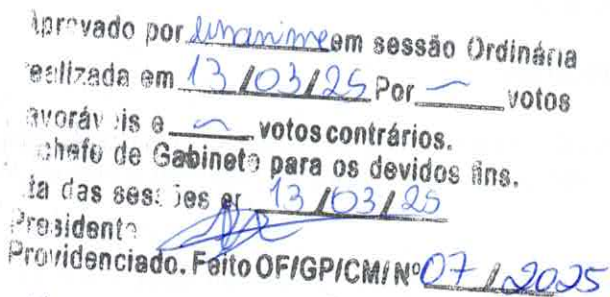 Aprovado por unanime em sessão Ordinária
realizada em 13/03/25 Por ~ votos
favoráveis e ~ votos contrários.
chefe de Gabinete para os devidos fins.
das sessões em 13/03/25
Presidente
Providenciado. Feito OF/GP/CM/Nº 07/2025